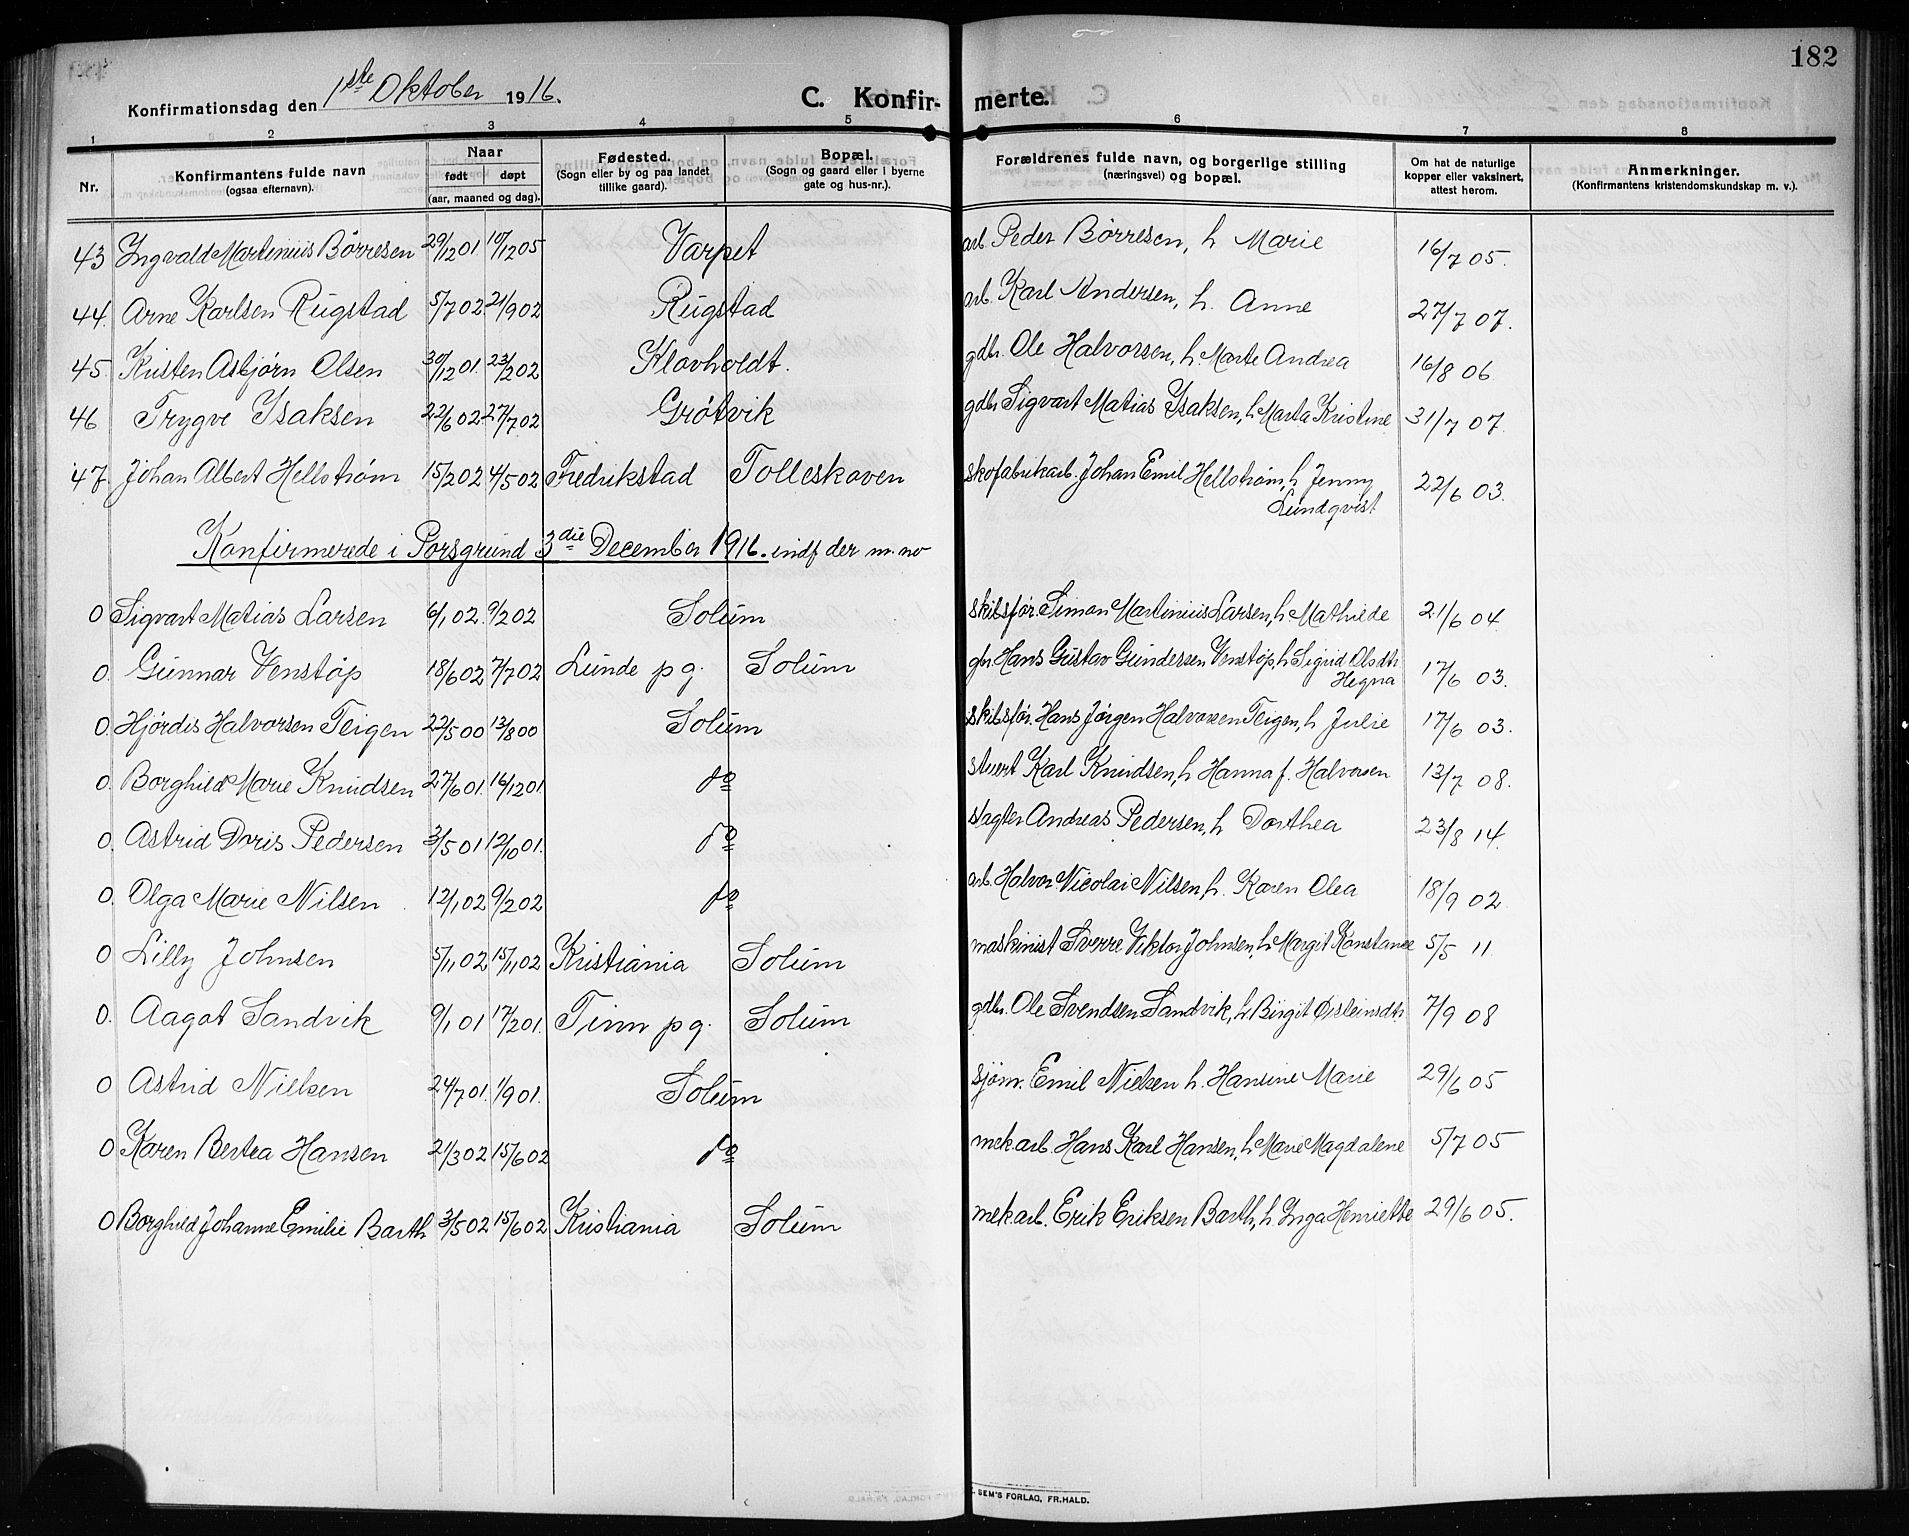 182
Konfirmationsdag den 1ste Oktober 1916.
C. Konfirmerte.
1 2 3 4 5 6 7 8
Nr. Konfirmantens fulde navn (ogsaa efternavn). Naar født døpt (aar, maaned og dag). Fødested. (Sogn eller by og paa landet tillike gaard). Bopæl. (Sogn og gaard eller i byerne gate og hus-nr.). Forældrenes fulde navn, og borgerlige stilling (næringsvei) og bopæl. Om hat de naturlige kopper eller vaksinert, attest herom. Anmerkninger. (Konfirmantens kristendomskundskap m. v.).
43 Ingvald Martinius Børresen 29/12 01. 10/12 05 Varpet arb. Peder Børresen, h Marie 16/7 05.
44. Arne Karlsen Rugstad 5/7 02. 21/9 02 Rugstad arb. Karl Andersen, h. Anne 27/7 07.
45. Kristen Asbjørn Olsen 30/12 01. 23/2 02 Klovholdt. gdbr. Ole Halvorsen, h. Marte Andrea 16/8 06
46 Trygve Isaksen 22/6 02. 27/7 02 Grøtvik gdbr Sigvart Matias Isaksen, h Marta Kristine 31/7 07.
47. Johan Albert Hellstrøm 15/2 02 4/5 02 Fredrikstad Tolleskoven skofabrikarb. Johan Emil Hellstrøm, h Jenny Lundqvist 22/6 03.
Konfirmerede i Porsgrund 3die December 1916. indf der m. no
0 Sigvart Matias Larsen 6/1 02. 9/2 02 Solum skibsfør. Simon Martinius Larsen, h Mathilde 21/6 04
0. Gunnar Venstøp 18/6 02 7/7 02 Lunde pg. Solum gbr Hans Gustav Gundersen Venstøp, h Sigrid Olsdtr Hegna 17/6 03.
0. Hjørdis Halvorsen Teigen 22/5 00 13/8 00 Solum skibsfør. Hans Jørgen Halvorsen Teigen, h Julie 17/6 03.
0. Borghild Marie Knudsen 27/6 01. 16/12 01 do stuert Karl Knudsen, h Hanna f. Halvorsen 13/7 08.
0. Astrid Doris Pedersen 3/5 01 12/10 01. do slagter Andreas Pedersen, h Dorthea 23/8 14.
0. Olga Marie Nilsen 12/1 02 9/2 02 do arb. Halvor Nicolai Nilsen, h. Karen Olea 18/9 02
0 Lilly Johnsen 5/1 02 15/11 02 Kristiania Solum maskinist Sverre Viktor Johnsen, h. Margit Konstance 5/5 11.
0. Aagot Sandvik 9/1 01 17/2 01. Tinn pg. Solum gdbr. Ole Svendsen Sandvik, h Birgit Østeinsdtr 7/9 08
0 Astrid Nielsen 24/7 01. 1/9 01. Solum sjøm. Emil Nielsen h. Hansine Marie 29/6 05
0 Karen Bertea Hansen 21/3 02 15/6 02 do mek.arb. Hans Karl Hansen, h Marie Magdalene 5/7 05
0 Borghild Johanne Emilie Barth 3/5 02 15/6 02 Kristiania Solum mek.arb. Erik Eriksen Barth, h Inga Henriette 29/6 05.
SEM'S FORLAG, FR.HALD.